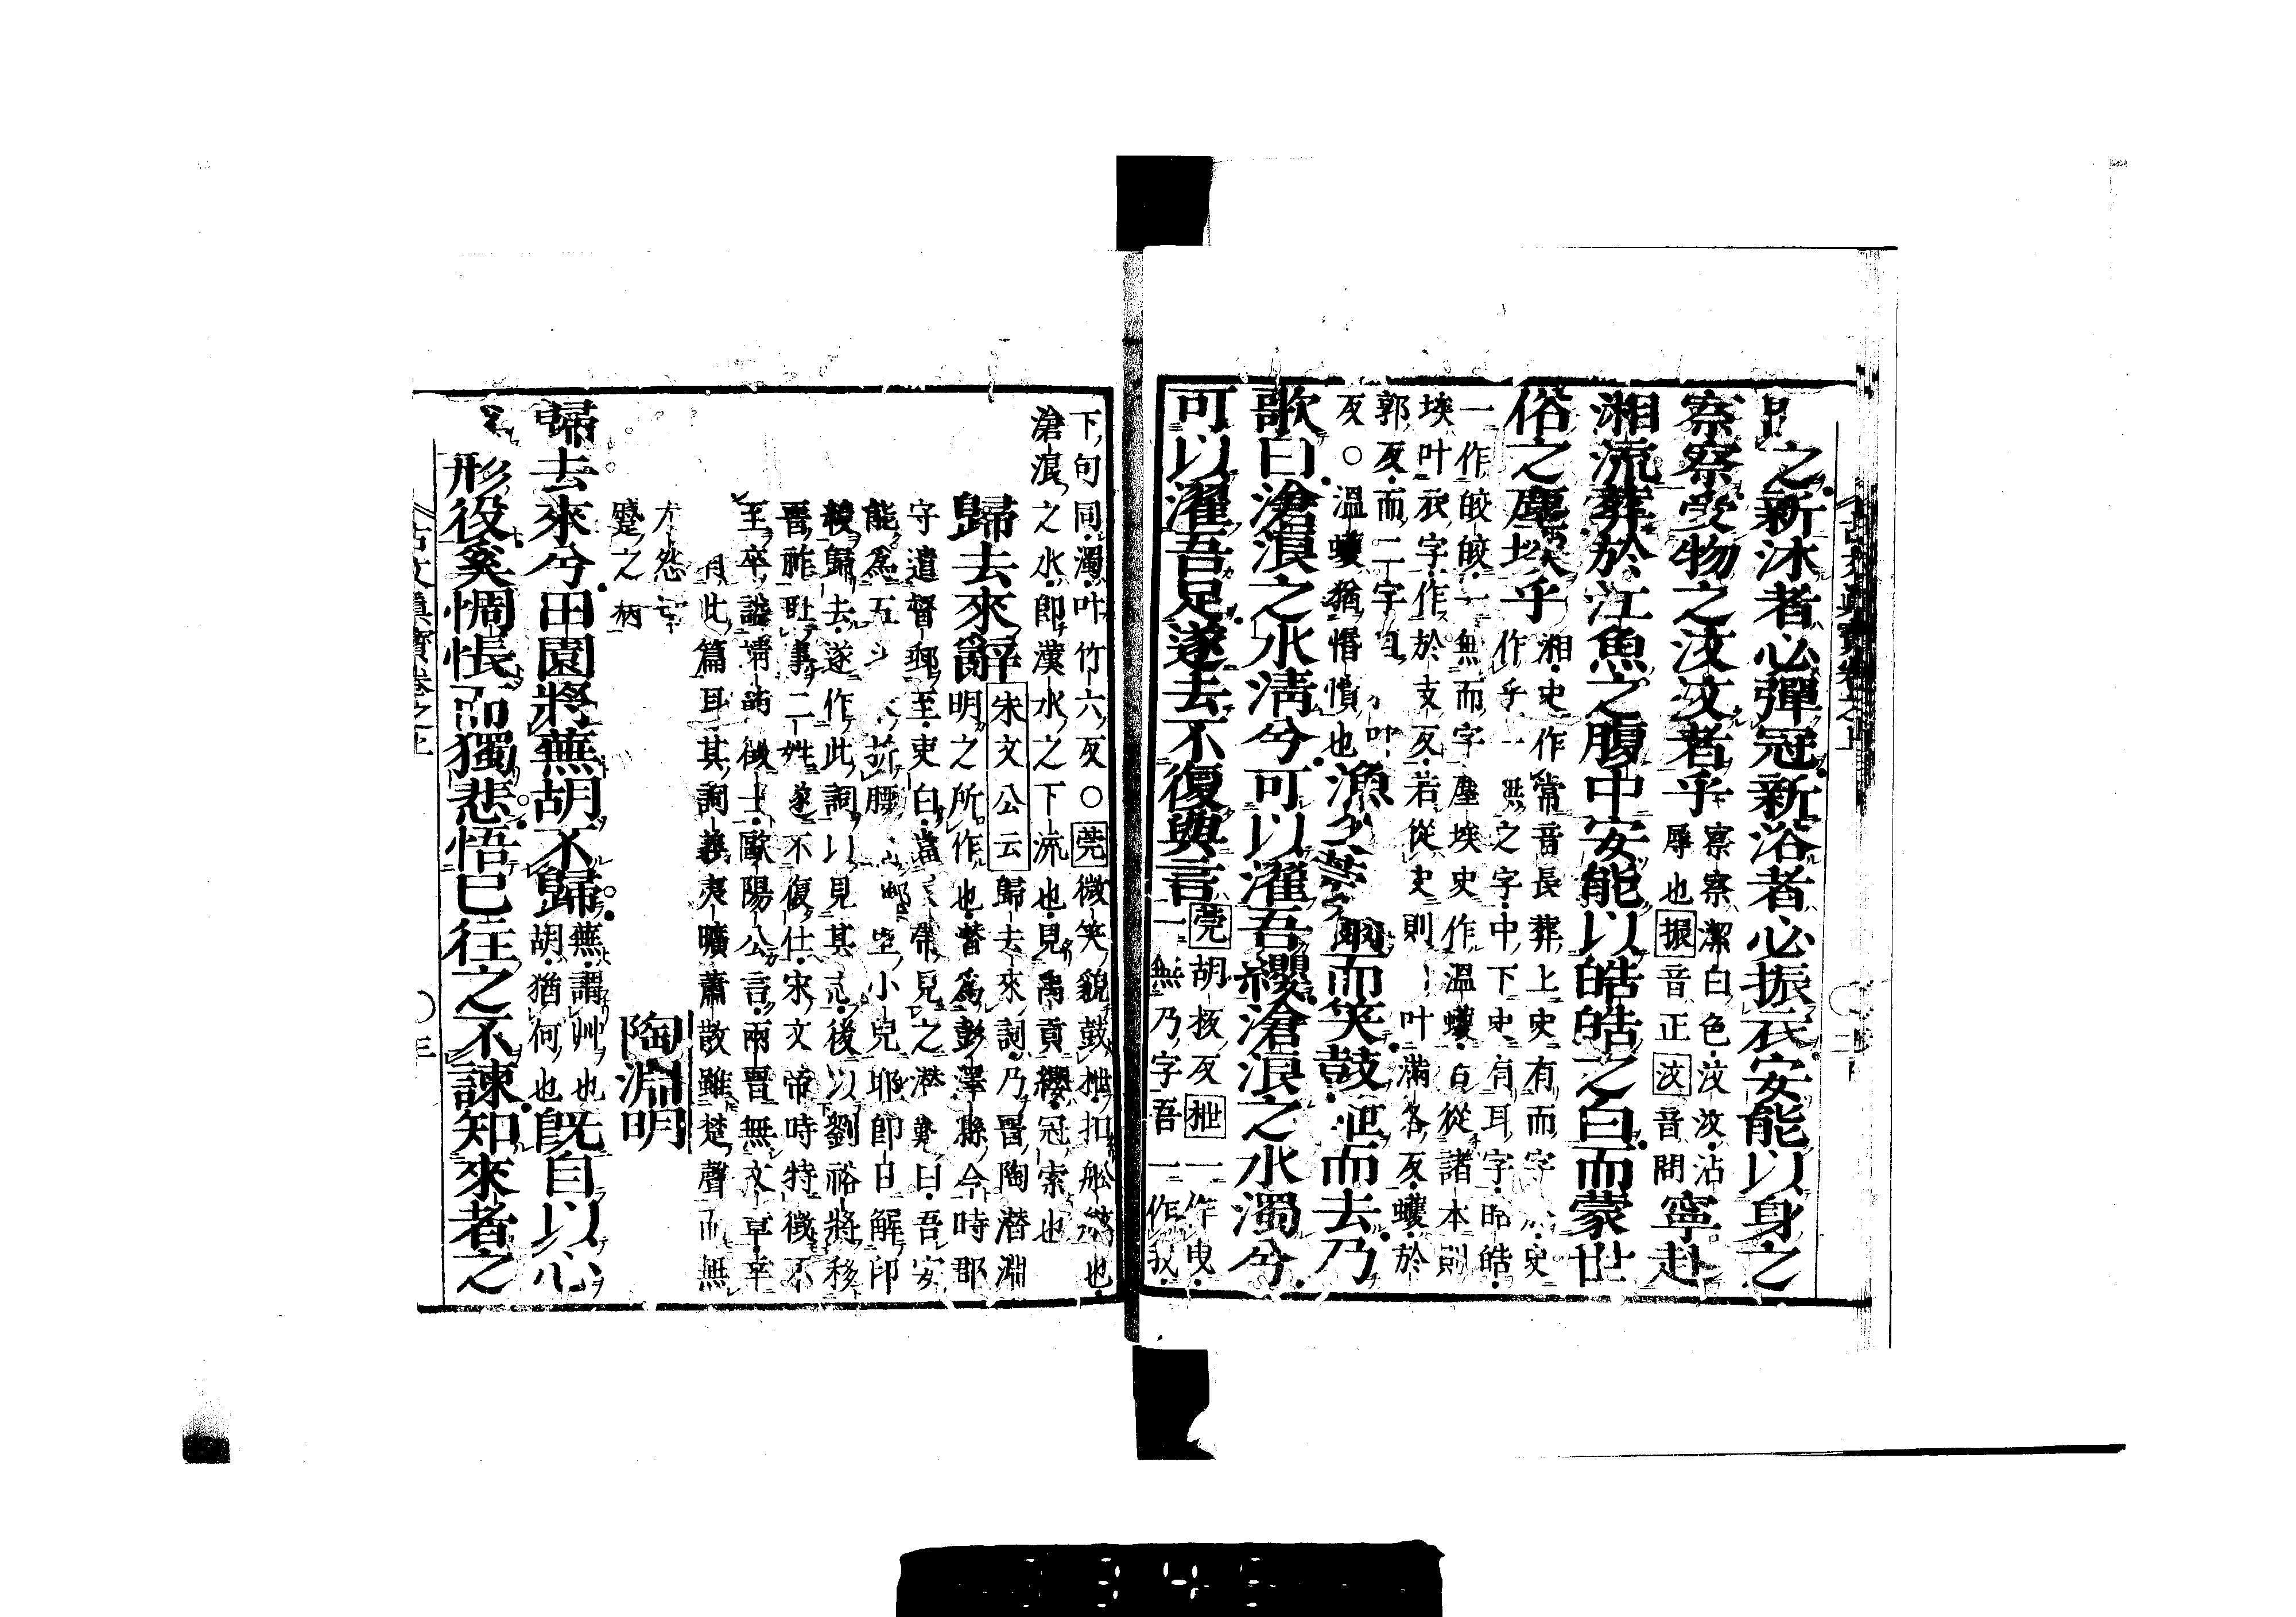 之新沐者必彈冠新浴者必振衣安能以身之
察察受物之汶汶者乎
察察潔白色汶汶沾
辱也振音正汶音問
寧赴
湘流葬於江魚之腹中安能以皓皓之白而蒙世
俗之塵埃乎
湘史作常音長葬上史有而字 史
作乎一無之字中下史有耳字 皓
一作皎皎一無而字塵埃史作溫蠖 從諸本則
埃叶衣字作於支反若從史則 叶滿各反蠖於
郭反而二字 叶
反○溫蠖猶惛憒也
漁父莞爾而笑鼓枻而去乃
歌曰滄浪之水清兮可以濯吾纓滄浪之水濁兮
可以濯吾足遂去不復與言
莞胡板反枻一作曳
一無乃字吾一作我
下句同濁叶竹六反○莞微笑貌鼓枻扣舩 也
滄浪之水即漢水之下流也見禹貢纓冠索也
歸去來辭
朱文公云歸去來詞乃晉陶潛淵
明之所作也嘗爲彭澤縣令時郡
守遣督郵至吏白當 帶見之潛 曰吾安
能爲五斗 折腰 小兒耶即日解印
綬歸去遂作此詞以見其志後以劉裕將移
晉祚恥事二姓遂不復仕宋文帝時特徵不
至卒諡靖 徵士歐陽公言兩晉無文章幸
此篇耳其詞義夷曠蕭散雖 楚聲而無
怨
蹙之病
陶淵明
歸去來兮田園將蕪胡不歸
蕪謂艸也
胡猶何也
既自以心
形役奚惆悵而獨悲悟已往之不諫知來者之
古文眞寶卷之上